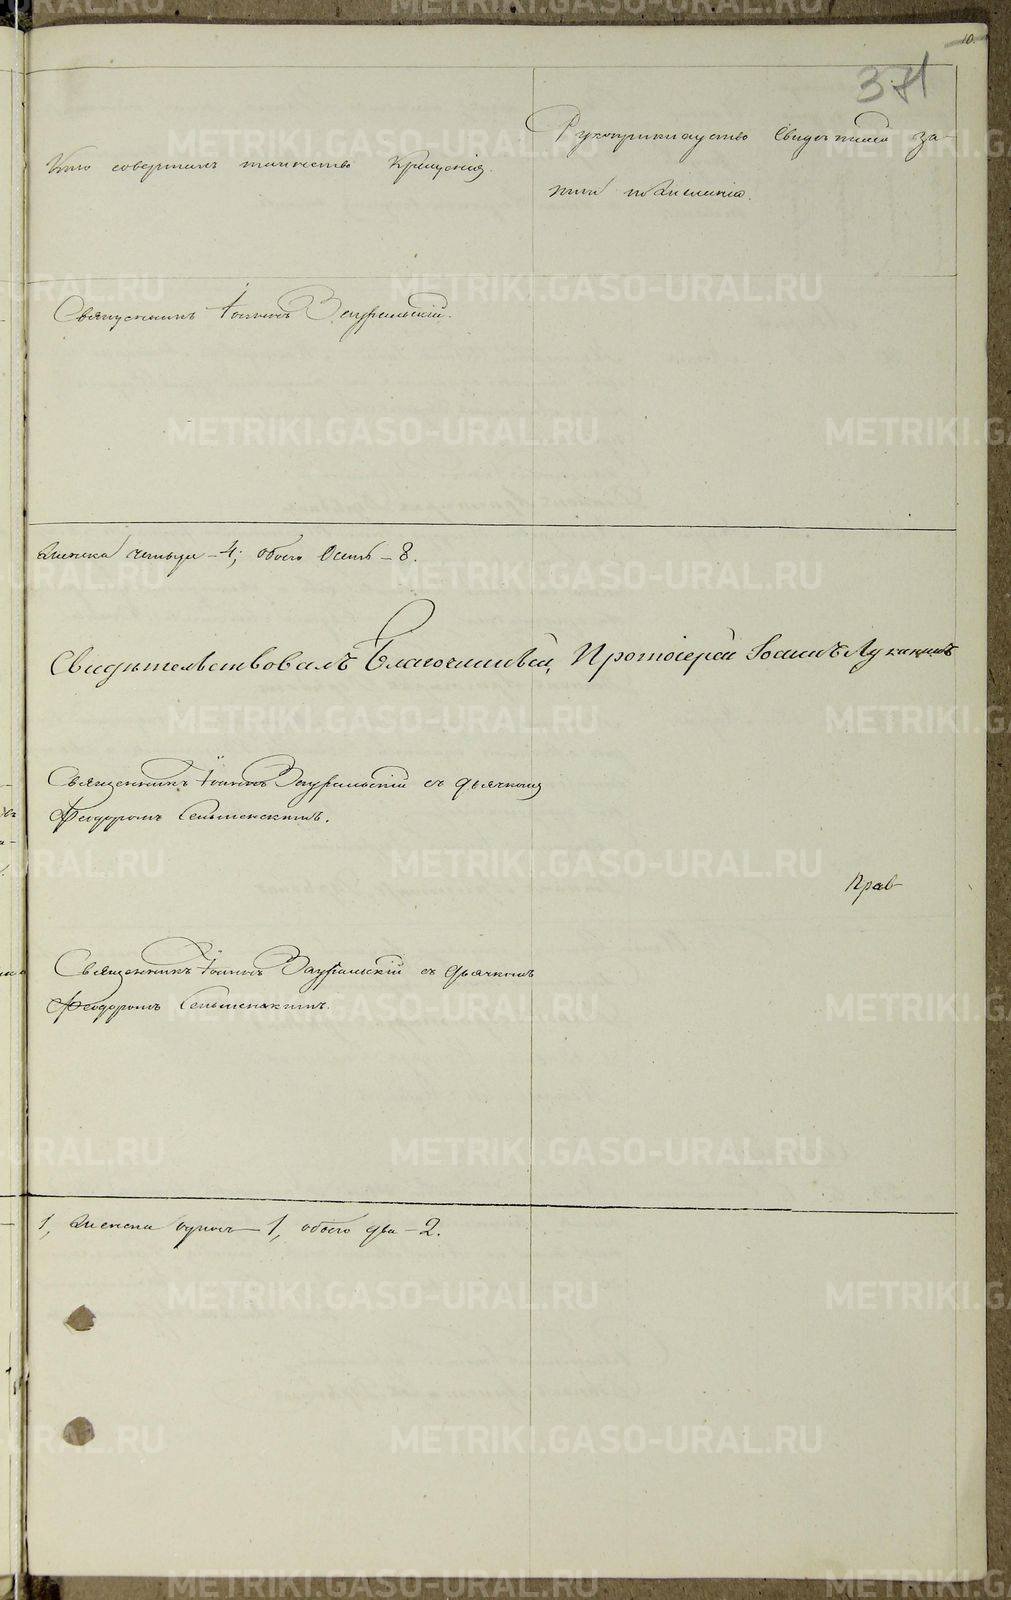 10.
371
Кто совершалъ таинство Крещенія.
Рукоприкладство Свидѣтелей за-
писи по желанію.
Священникъ Іоаннъ Зауральскій.
Женска четыре – 4; обоего Осемь – 8.
Свидѣтельствовалъ Благочинный, Протоіерей Іоаннъ Луканинъ
Священникъ Іоаннъ Зауральскій съ дьячкомъ
Феодоромъ
Прав-
Священникъ Іоаннъ Зауральскій съ дьячкомъ
Феодоромъ
1, Женска одна – 1, обоего два – 2.
METRIKI.GASO-URAL.RU